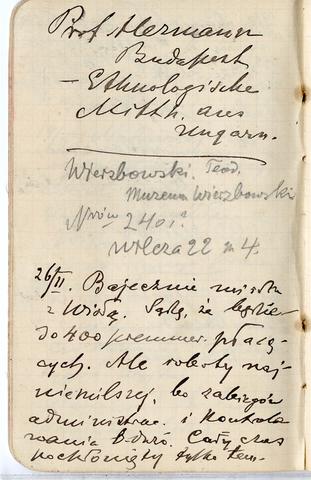 Prof Hermann
Budapest
— Ethnologische
Mitth. aus
Ungarn.
Wierzbowski. Teod.
Muzeum Wierzbowski
Nrów 2401?
wilcza 22 m 4.
26/II. Bajecznie mi idzie
z Wisłą. Sądzę, że będzie
do 400 prenumer. płacą-
cych. Ale roboty naj-
niemilszej, bo zabiegów
administrac. i kontrolo
wania b. dużo. Cały czas
pochłonięty tylko tem-